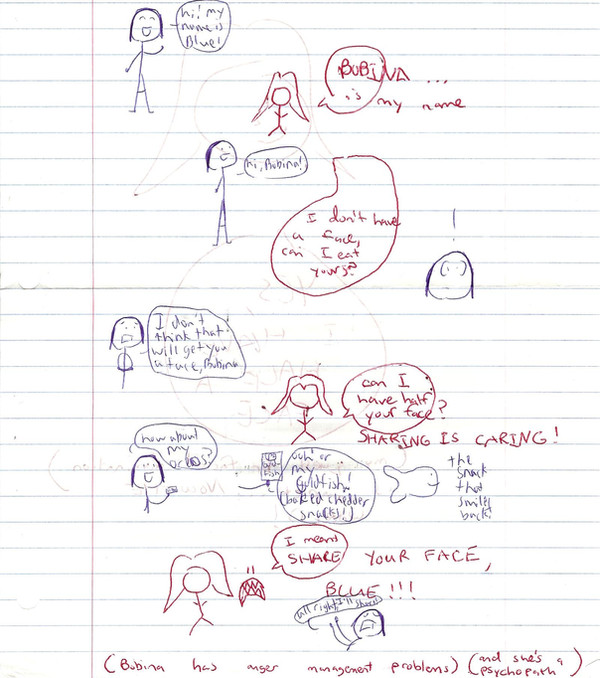 hi! my
name is
Blue!
BUBINA ...
is my name
hi, Bubina!
I don't have
a face,
can I eat
yours?
!
I don't
think that
will get you
a face, Bubina
can I
have half
your face?
SHARING IS CARING!
how about
my
ooh! or
my
Goldfish!
(baked chedder
snacks!)
the
snack
that
smiles
back!
I meant
SHARE YOUR FACE,
BLUE!!!
all right, I'll share!
(Bubina has anger management problems) (and she's a
psychopath)